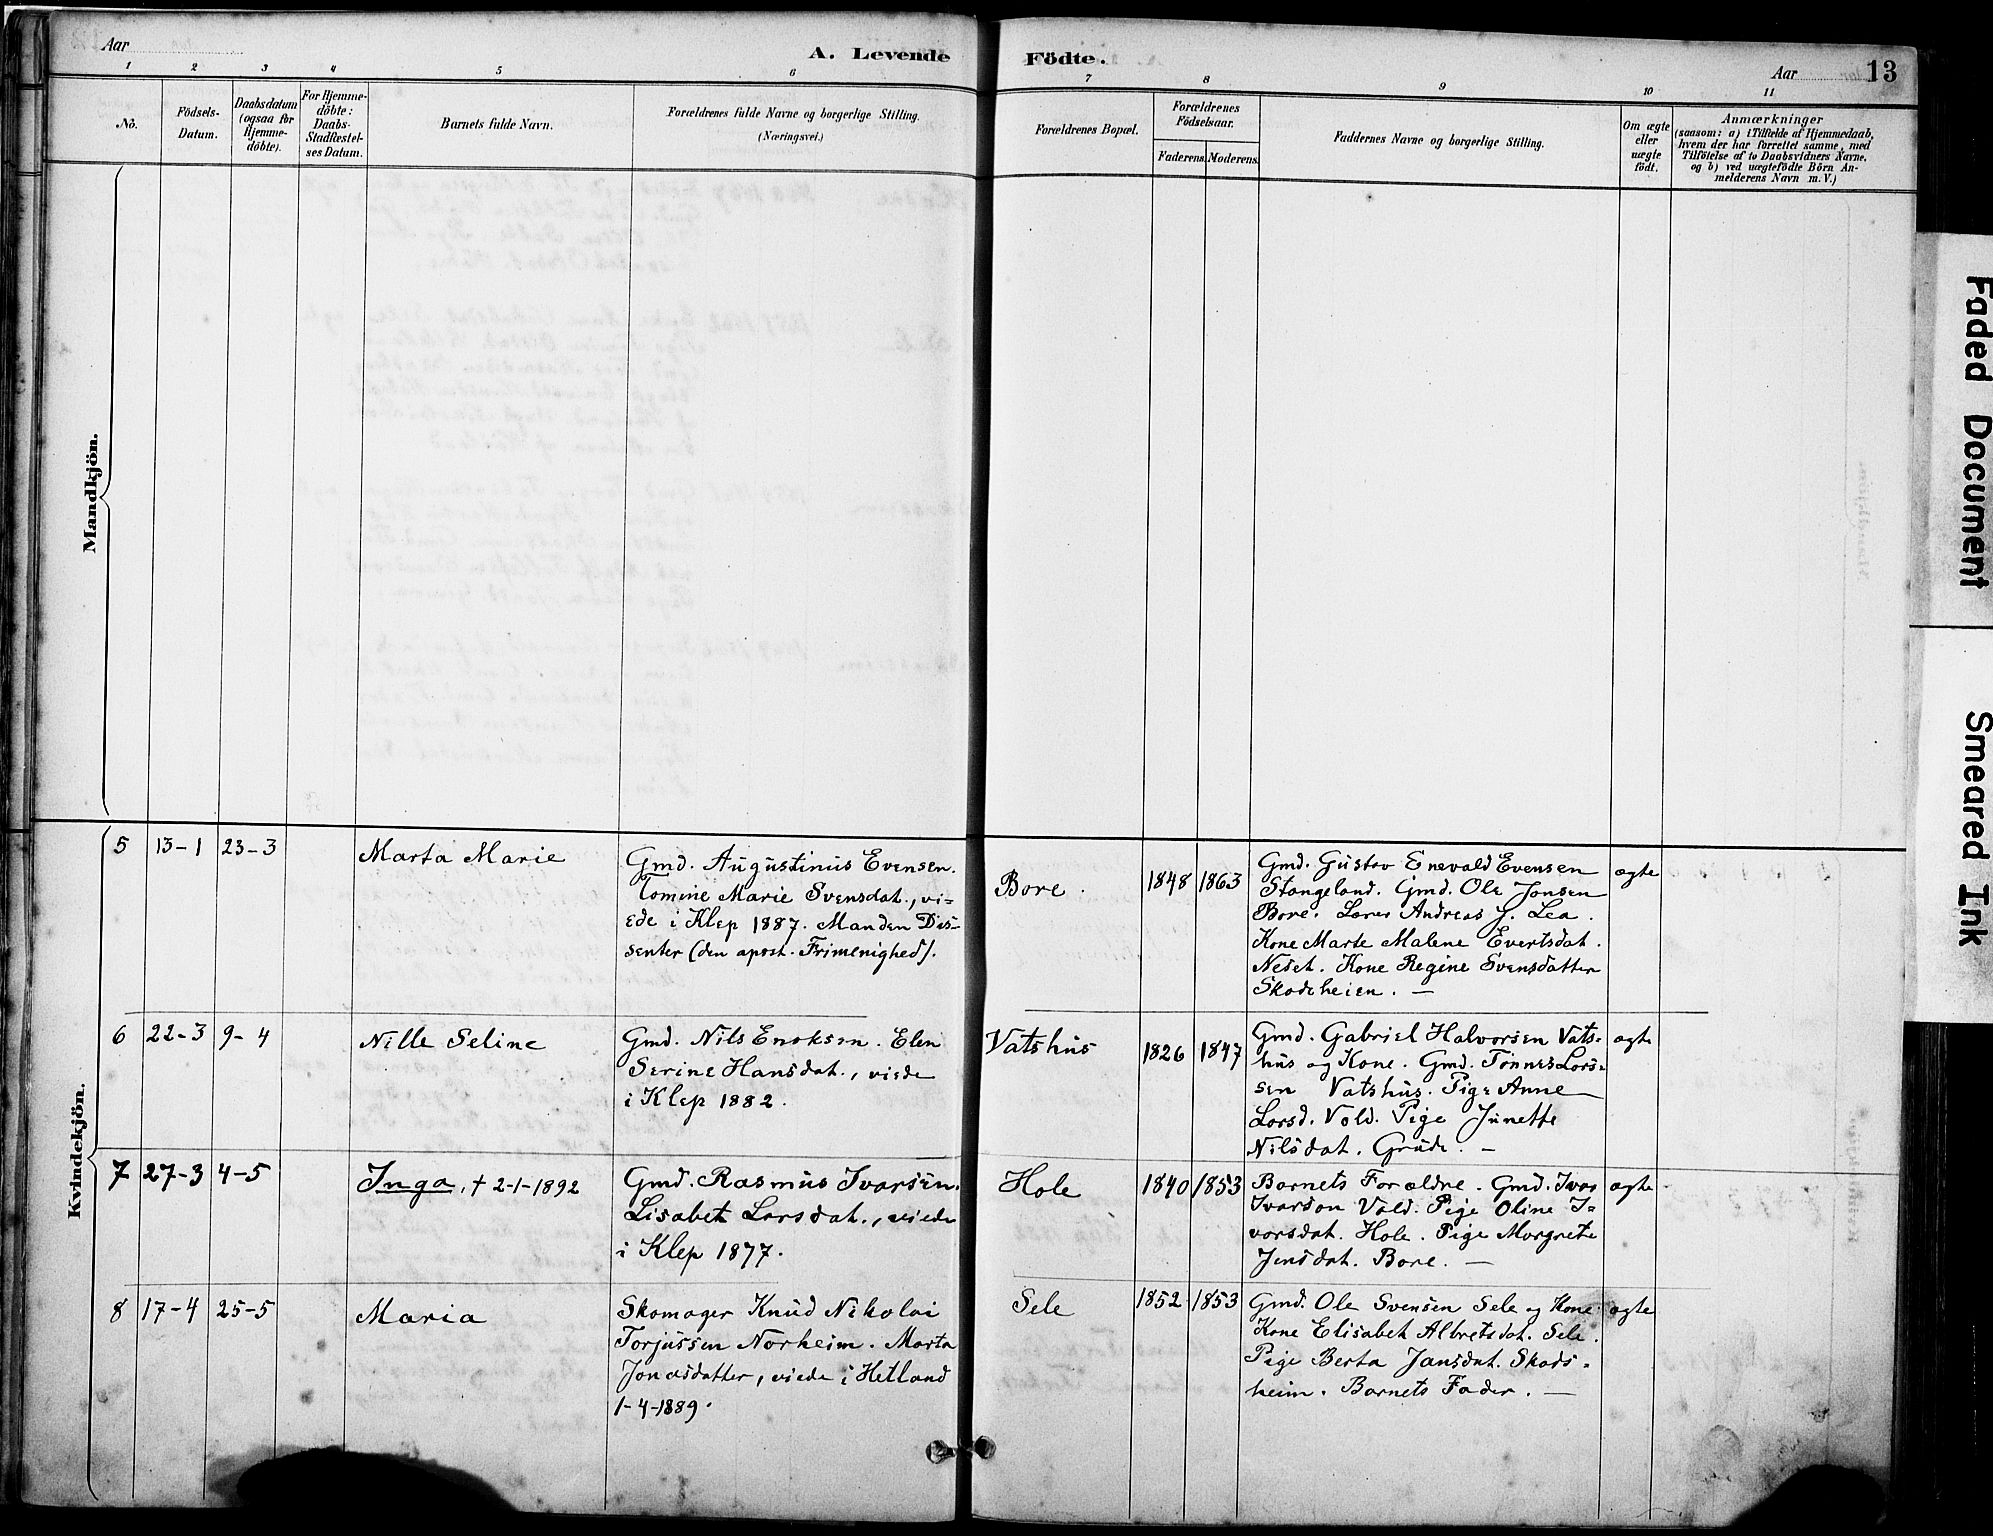 Aar
A. Levende
Födte.
Aar
13
1 2 3 4 5 6 7 8 9 10 11
No.
Födsels-
Datum.
Daabsdatum
(ogsaa for
Hjemme-
döbte).
For Hjemme-
döbte:
Daabs-
Stadfæstel-
ses Datum.
Barnets fulde Navn.
Forældrenes fulde Navne og borgerlige Stilling.
(Næringsvei.)
Forældrenes Bopæl.
Forældrenes
Födselsaar.
Faderens. Moderens.
Faddernes Navne og borgerlige Stilling.
Om ægte
eller
uægte
födt.
Anmærkninger
(saasom: a) i Tilfælde af Hjemmedaab,
hvem der har forrettet samme, med
Tilföielse af to Daabsvidners Navne.
og b) ved uægtefödte Börn An-
melderens Navn m. V.)
Mandkjön.
Kvindekjön.
5 13-1 23-3
Marta Marie
Gmd. Augustinus Evensen.
Tomine Marie Svensdat., vi-
ede i Klep 1887. Manden Dis-
senter (den apost. Frimenighed).
Bore.
1848 1863
Gmd. Gustav Enevald Evensen
Stangeland. Gmd. Ole Jonsen
Bore. Lars Andreas J. Lea.
Kone Marte Malene Evertsdat.
Neset. Kone Regine Svensdatter
Skodeheien. —
ægte
6 22-3 9-4
Nille Seline
Gmd. Nils Enoksen. Elen
Serine Hansdat., viede
i Klep 1882.
Vatshus
1826 1847
Gmd. Gabriel Halvorsen Vats-
hus og Kone. Gmd. Tönnes Lars-
sen Vatshus. Pige Anne
Larsd. Vold. Pige Junette
Nilsdat. Grude. —
ægte
7 27-3 4-5
Inga, † 2-1-1892
Gmd. Rasmus Ivarsen.
Lisabet Larsdat., viede
i Klep 1877.
Hole
1840 1853
Barnets Forældre. Gmd. Ivar
Ivarson Vold. Pige Oline I-
varsdat. Hole. Pige Margrete
Jensdat. Bore. —
ægte
8 17-4 25-5
Maria
Skomager Knud Nikolai
Torjussen Norheim. Marta
Jonasdatter, viede i Hetland
1-4-1889.
Sele
1852 1853
Gmd. Ole Svensen Sele og Kone.
Kone Elisabet Albretsdat. Sele.
Pige Berta Jansdat. Skads-
heim. Barnets Fader. —
ægte
Faded Document
Smeared Ink